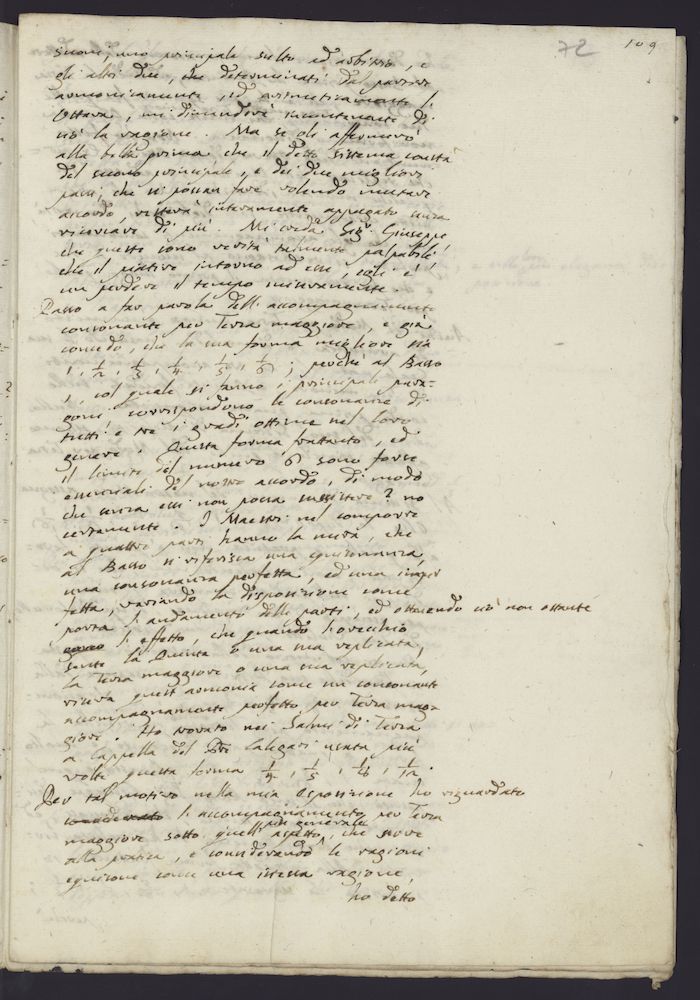 72 109
suoni, uno principale scelto ad arbitrio, e
gli altri due, che determinati dal partire
armonicamente, ed aritmeticamente l'
Ottava, mi dimanderà incontanente di
ciò la ragione. Ma se gli affermerò
alla bella prima che il detto sistema consta
del suono principale, e dei due migliori
passi, che si possan fare volendo mutare
accordo, resterà interamente appagato senza
ricercare di più. Mi creda Sigr. Giuseppe
che queste sono verità talmente palpabili
che il piatire intorno ad esse, egli è
un perdere il tempo miseramente.
Passo a far parola dell'accompagnamento
consonante per Terza maggiore, e già
concedo, che la sua forma migliore sia
1, 1/2, 1/3, 1/4, 1/5, 1/6; perchè al Basso
1, col quale si fanno i principali para=
goni, corrispondono le consonanze di
tutti e tre i gradi ottime nel loro
genere. Questa forma frattanto, ed
il limite del numero 6 sono forse
essenziali del nostro accordo, di modo
che senza essi non possa sussistere? no
certamente. I Maestri nel comporre
a quattro parti hanno la mira, che
al Basso si riferisca una equisonanza,
una consonanza perfetta, ed una imper
fetta, variando la disposizione come
porta l'andamento delle parti, ed ottenendo ciò non ostante
l'effetto, che quando l'orecchio
sente la Quinta o una sua replicata,
la Terza maggiore o una sua replicata,
riceva quest'armonia come un consonante
accompagnamento perfetto per Terza mag=
giore. Ho trovato nei Salmi di Terza
a Cappella del Calegari usata più
volte questa forma 1/4, 1/5, 1/6, 1/12.
Per tal motivo nella mia Esposizione ho riguardato
considerato l'accompagnamento per Terza
maggiore sotto quell'aspetto più generale, che serve
alla pratica, e considerando le ragioni
equisone come una istessa ragione,
ho detto